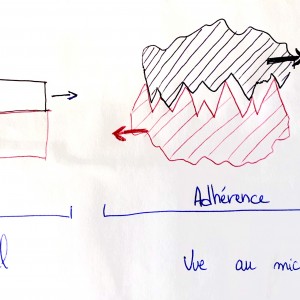 Adhérence
Vue au mic